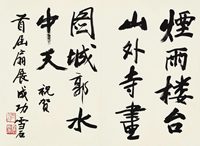 煙雨楼台
山外寺畫
圖城郭水
中天
祝賀
首届扇展成功